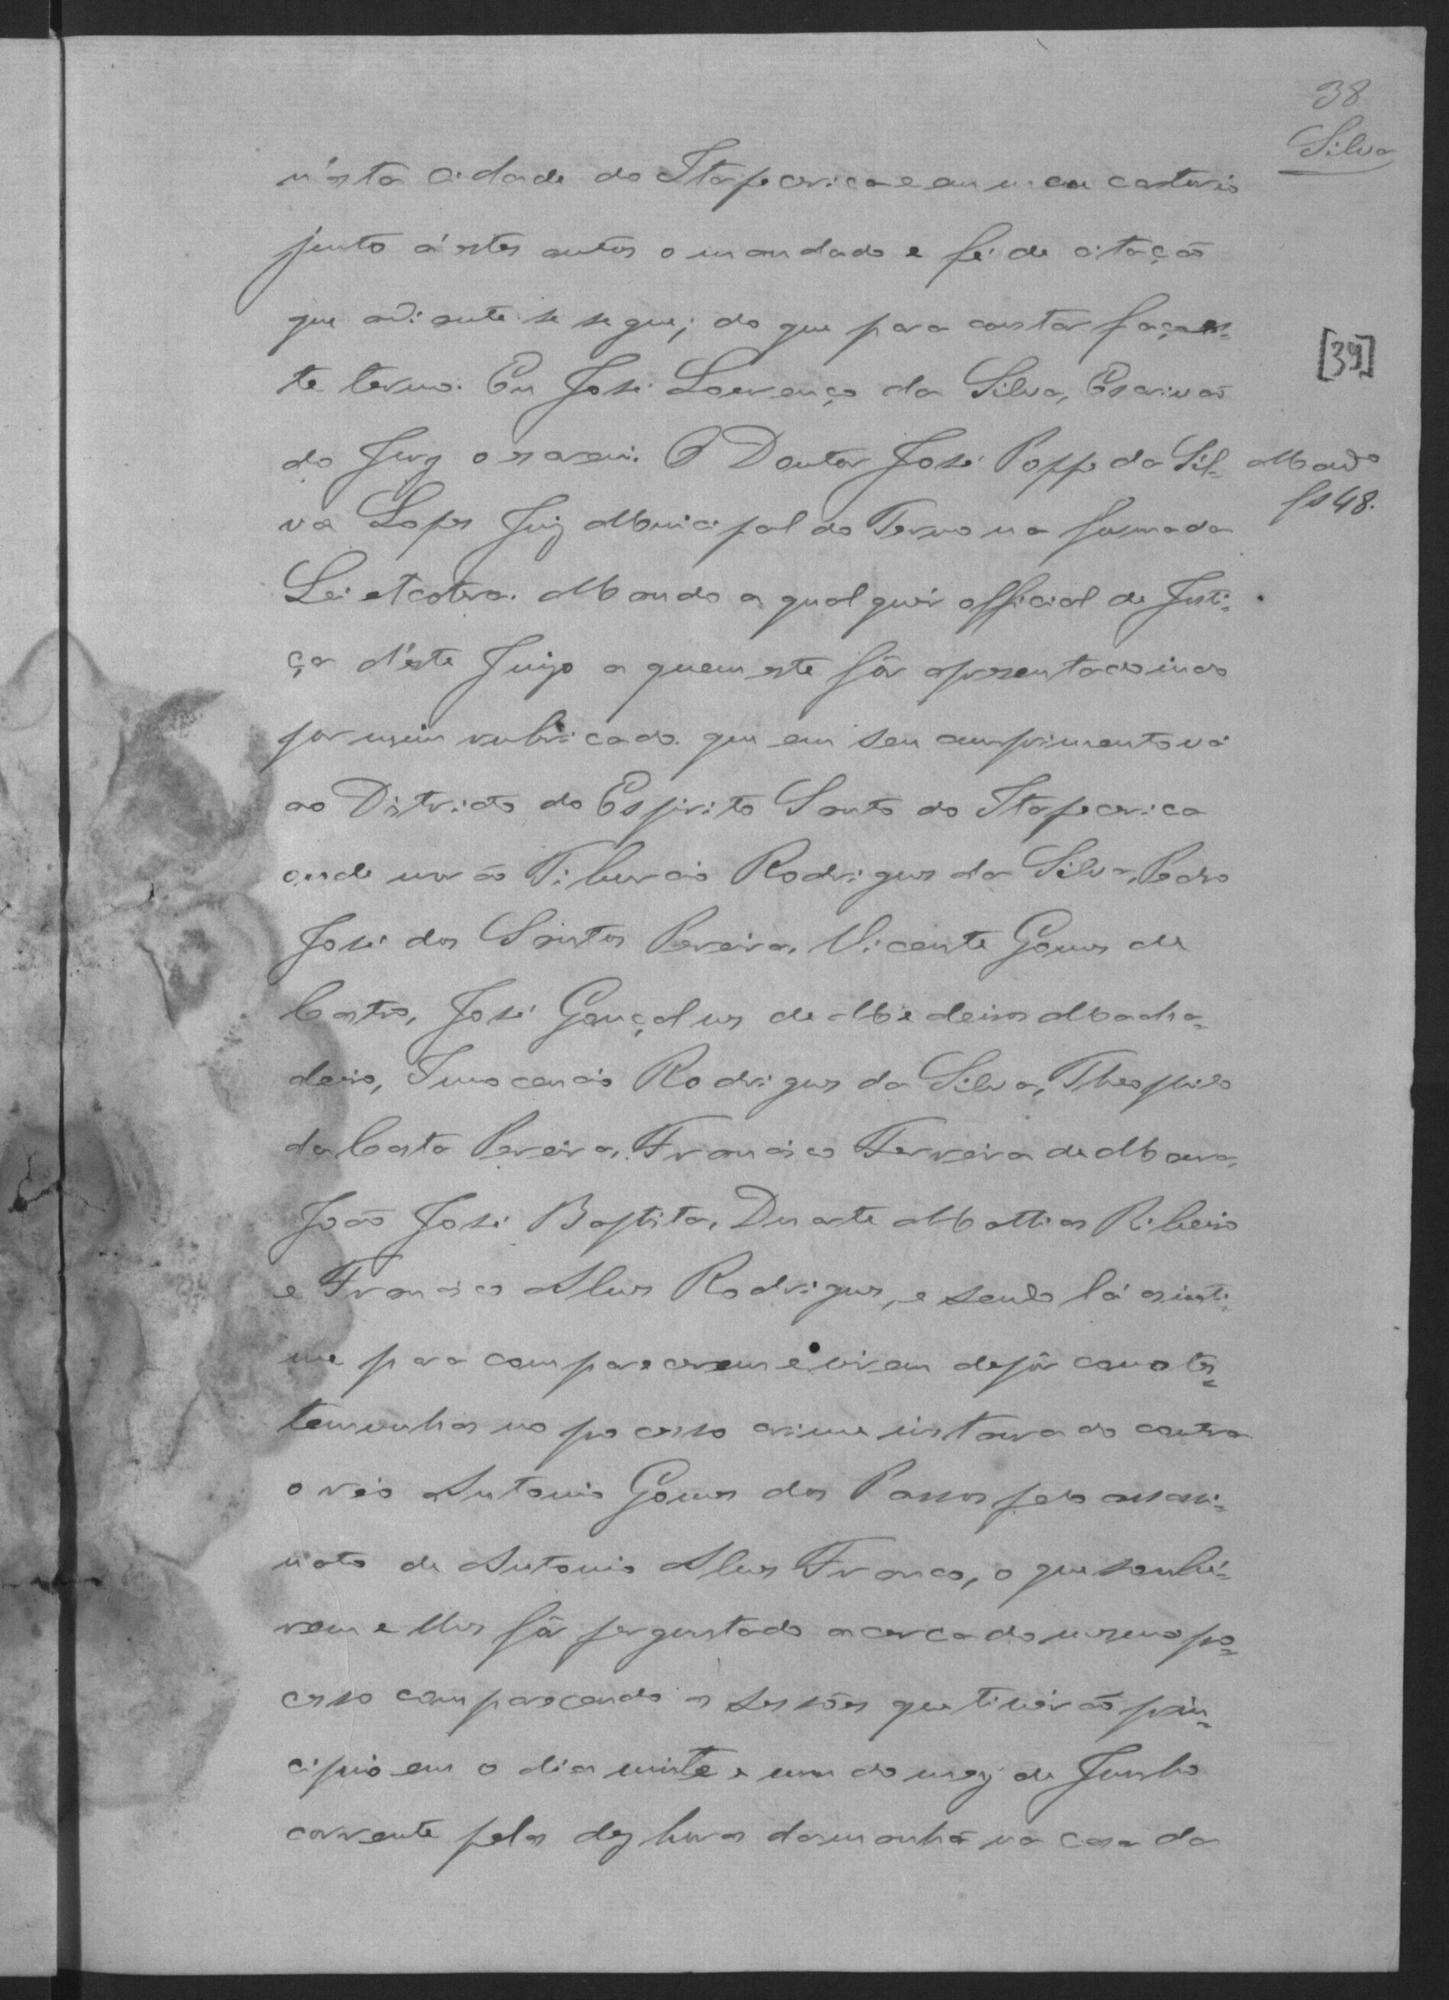 38
Silva
n'esta cidade do Itapecerica e em meu cartorio
junto á estes autos o mandado e fé de citação
que adiante se segue; do que para constar faço es-
te termo. Eu José Lourenço da Silva, Escrivão
[39]
do Jury o escrevi. O Doutor José Poppe da Sil-
Mando
fs 48.
va Lopes Juiz Municipal do Termo na forma da
Lei etcetera. Mando a qualquér official de Justi-
ça d'éste Juizo a quem este fôr apresentado indo
por mim rubricado que em seu cumprimento vá
ao Districto do Espirito Santo do Itapecerica
onde morão Tiburcio Rodrigues da Silva, Pedro
José dos Santos Pereira, Vicente Gomes de
Castro, José Gonçalves de Medeiros Macha-
deiro, Innocencio Rodrigues da Silva, Theophilo
da Costa Pereira, Francisco Ferreira de Moura,
João José Baptista, Duarte Mathias Ribeiro
e Francisco Alves Rodrigues, e sendo lá os inti-
me para comparecerem e virem depôr como tes-
temunhas no processo crime instaurado contra
o réo Antonio Gomes dos Passos pelo assassi-
nato de Antonio Alves Franco, o que soubé-
rem e lhes fôr perguntado acerca do mesmo pro-
cesso comparecendo as sessões que tiverão prin-
cipio em o dia vinte e um do mez de Junho
corrente pelas dez horas da manhã na casa da